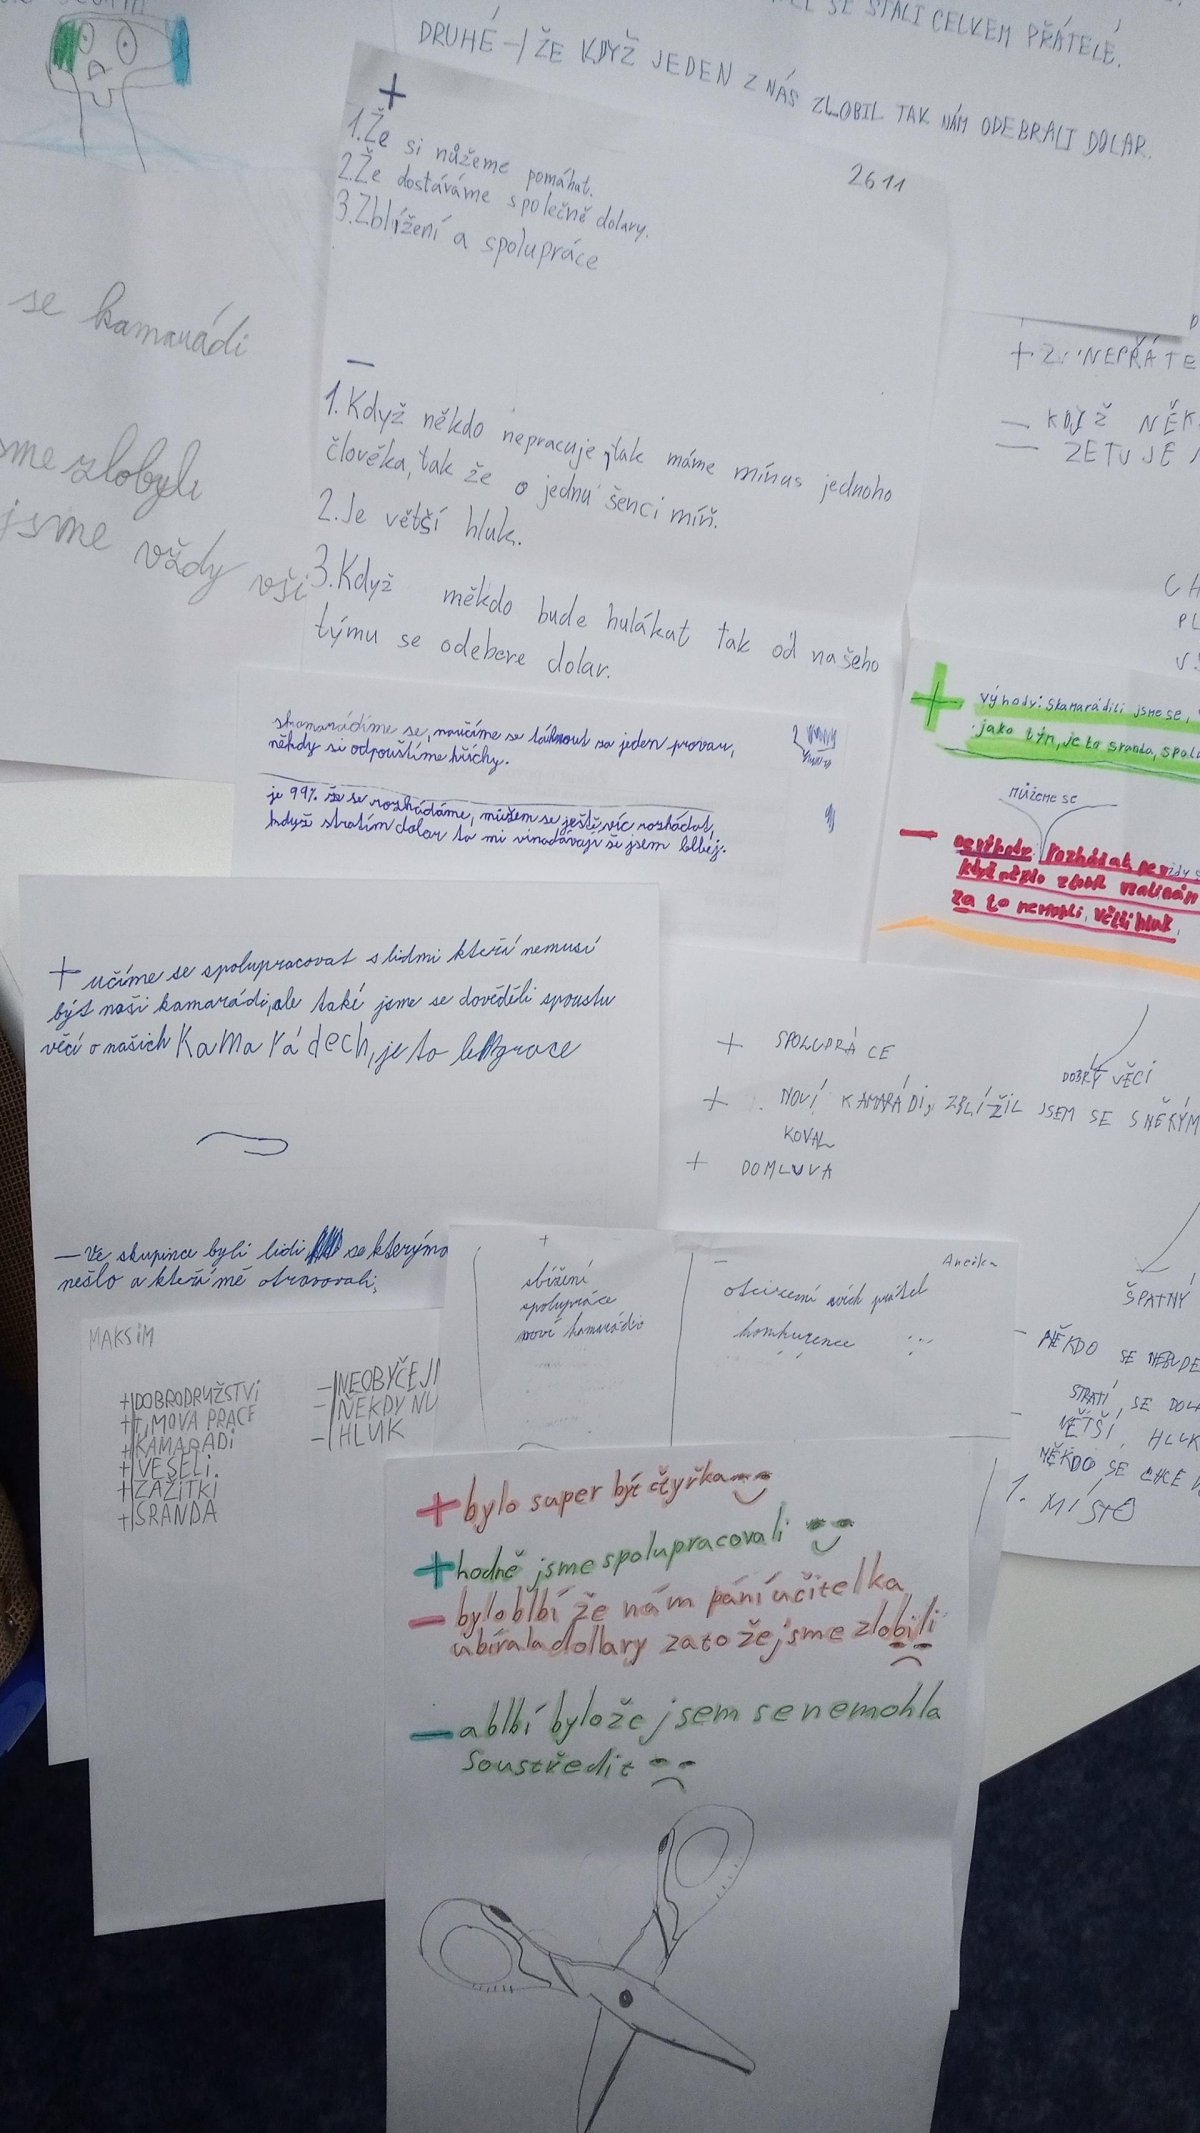 SE STALI CELKEM PŘÁTELÉ.
DRUHÉ - ŽE KDYŽ JEDEN Z NÁS ZLOBIL TAK NÁM ODEBRALI DOLAR.
+
1. Že si nůžeme pomáhat.
2. Že dostáváme společně dolary.
3. Zblížení a spolupráce
2611
-
1. Když někdo nepracuje, tak máme mínus jednoho
člověka, tak že o jednu šenci míň.
2. Je větší hluk.
3. Když někdo bude hulákat tak od našeho
týmu se odebere dolar.
se kamarádi
sme zlobyli
jsme vždy vši
+ NEPŘÁTE
- KDYŽ NĚK
- ZETUJE
CH
PL
skamarádíme se, naučíme se táhnout za jeden provaz,
někdy si odpoustíme hříchy.
2
je 99% že se rozhádáme, můžem se ještě víc rozhádat,
když stratím dolar to mi vinadávají ši jsem blbej.
+ výhody: skamarádili jsme se,
jako tým, je to sranda, spolu
můžeme se
- nevýhody: rozhádat
když někdo zlobil
za to nemohli, větší hluk.
+ učíme se spolupracovat s lidmi kteří nemusí
být naši kamarádi, ale také jsme se dověděli spoustu
věcí o našich kamarádech, je to
- Ve skupince byli lidi se kterýma
nešlo a kteří mě otravovali,
+ SPOLUPRÁCE
DOBRÝ VĚCI
+ NOVÍ KAMARÁDI, ZBLÍŽIL JSEM SE S NĚKÝM
KOVAL
+ DOMLUVA
ŠPATNÝ
- NĚKDO SE NEBUDE
STRATÍ SE DOLA
- VĚTŠÍ HLUK
NĚKDO SE CHCE
1. MÍSTO
+
sblížení
spolupráce
noví kamarádio
-
Anežka
otcizení svích přátel
konkurence
MAKSIM
+ DOBRODRUŽSTVi
+ TIMOVA PRACE
+ KAMARADi
+ VESELi
+ ZAŽITKi
+ SRANDA
- NEOBYČEJ
- NEKDY NU
- HLUK
+ bylo super být čtyřka
+ hodně jsme spolupracovali
- bylo blbí že nám pání účitelka
ubírala dollary za to že jsme zlobili
- a blbí bylo že jsem se nemohla
soustředit